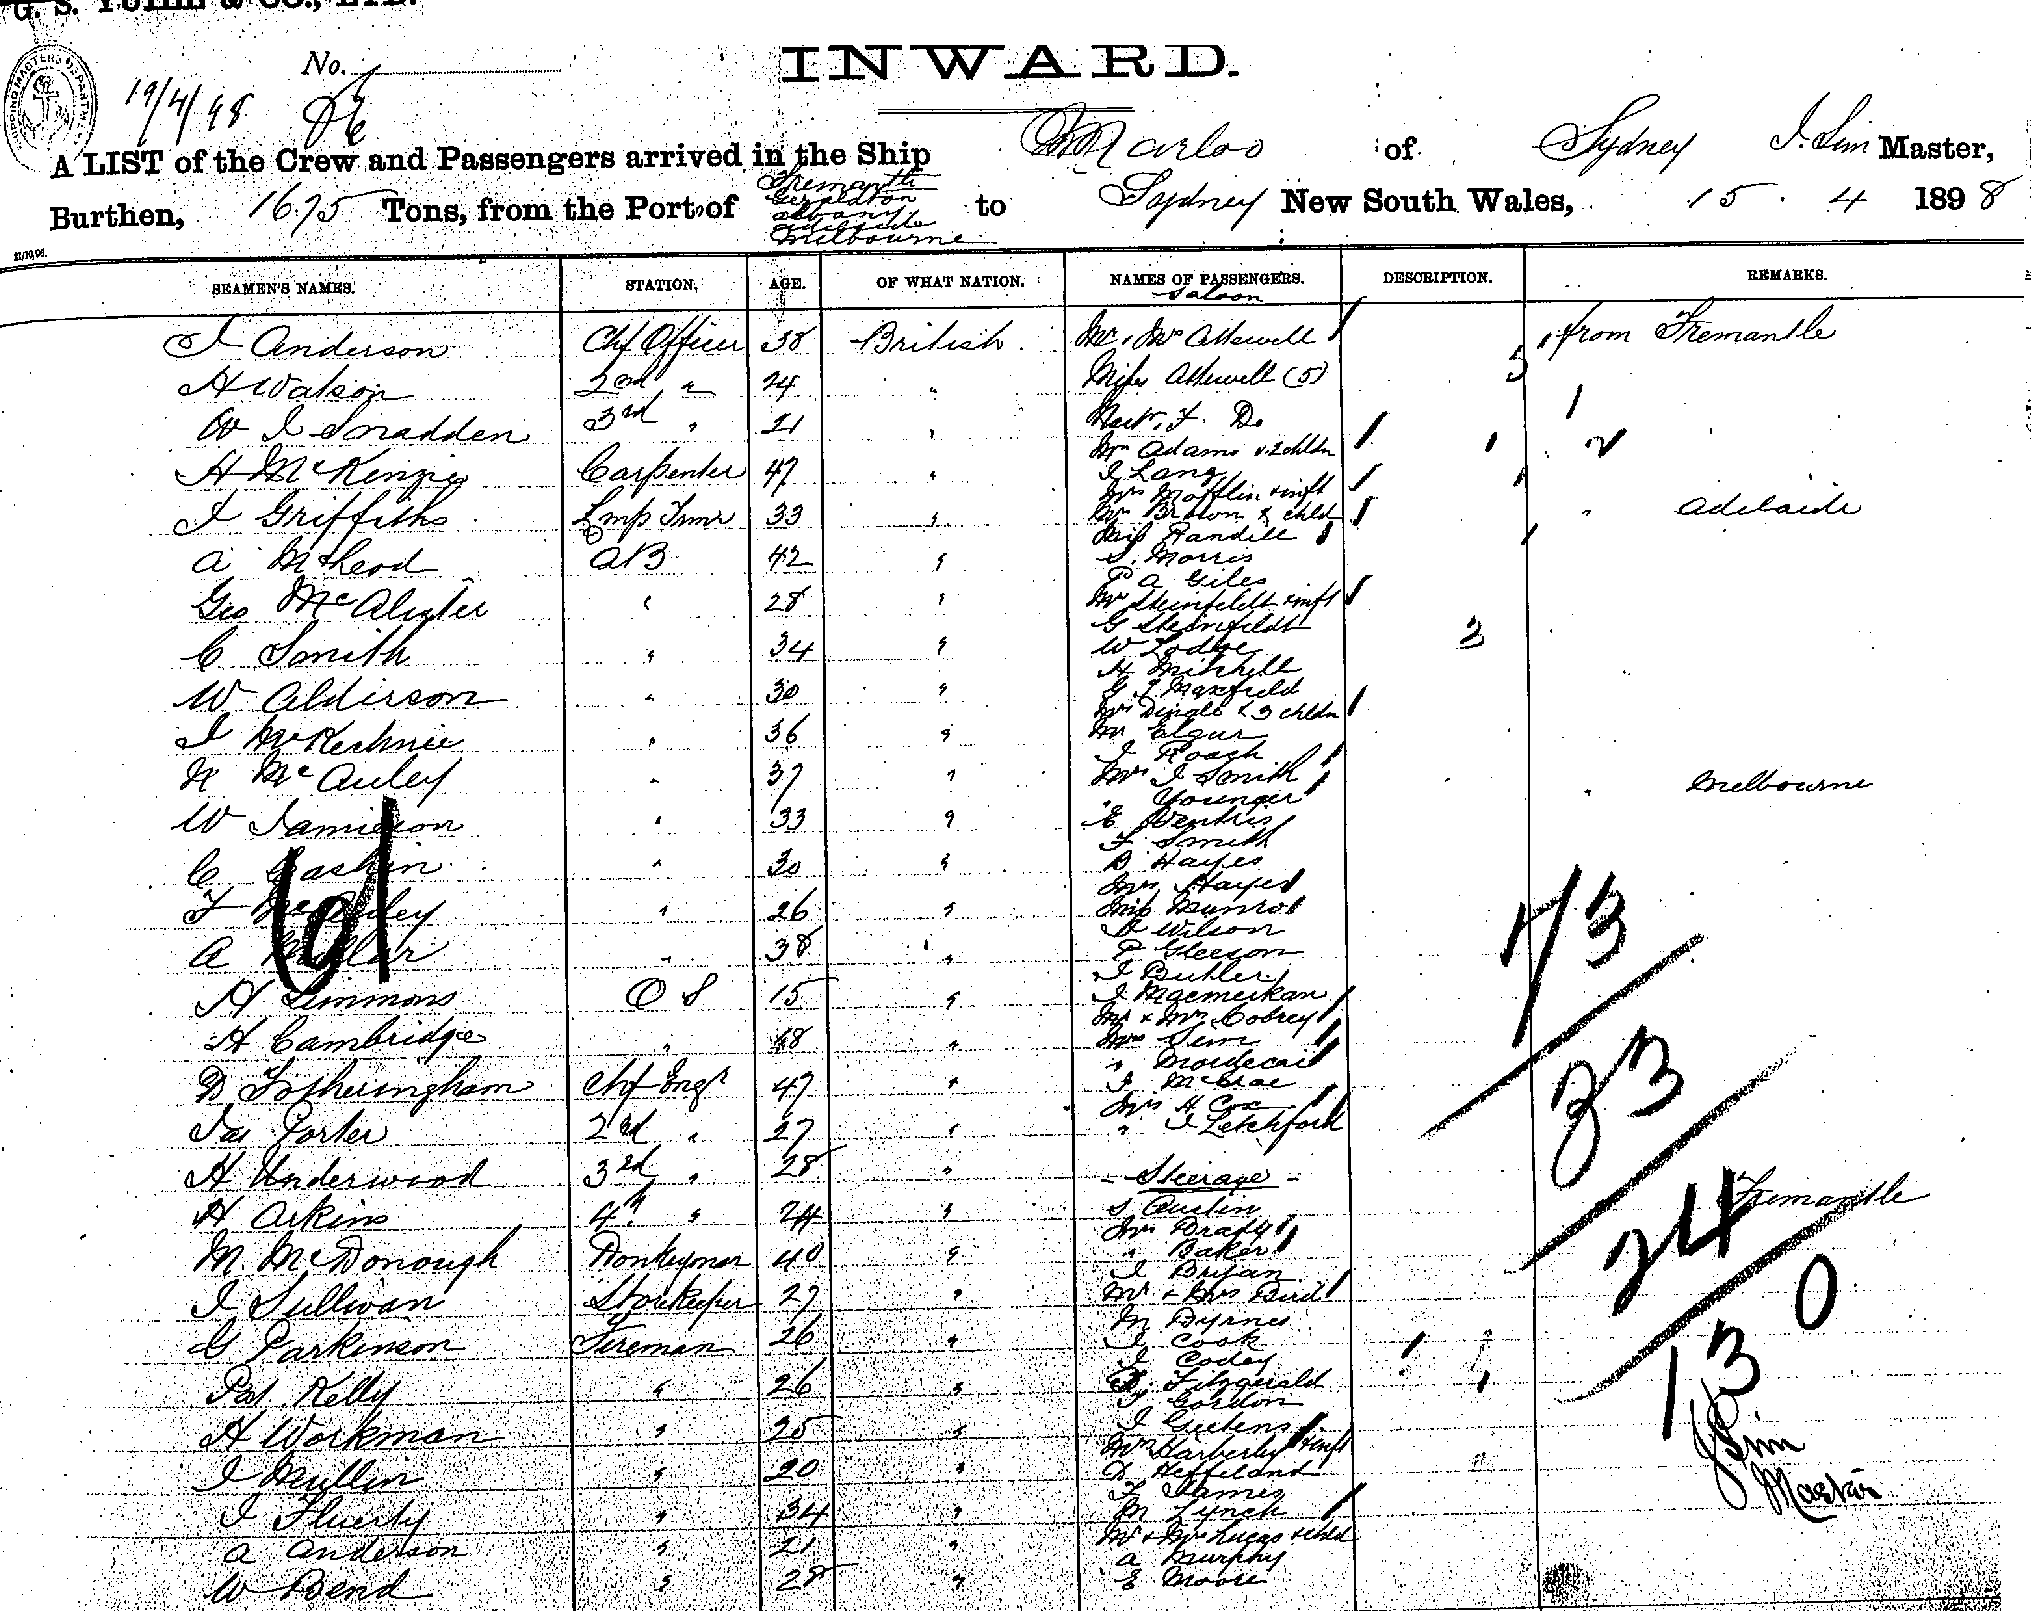 G. S. YUILL & CO., LTD.
INWARD.
No.
19/4/98
A LIST of the Crew and Passengers arrived in the Ship Marloo of Sydney J. Sim Master,
Burthen, 1675 Tons, from the Port of Fremantle Geraldton Albany Adelaide Melbourne to Sydney New South Wales, 15 . 4 1898
SEAMEN'S NAMES. STATION. AGE. OF WHAT NATION. NAMES OF PASSENGERS. DESCRIPTION. REMARKS.
Saloon
J Anderson Chf Officer 38 British Mr & Mrs Attewell from Fremantle
H Watson 2nd " 24 " Misses Attewell (5)
W J Smadden 3rd " 21 " Mast. F. Do
Mrs Adams & 2 chldn
H McKenzie Carpenter 47 " J Lang
Mrs Mofflin & inft
J Griffiths Lmp Trmr 33 " Mrs Brown & chld " Adelaide
Miss Randell
A McLeod AB 42 " S. Morris
P A Giles
Geo McAlister " 28 " Mrs Steinfeldt & inft
G Steinfeldt
C Smith " 34 " W Lodge
H Mitchell
W Alderson " 30 " G J Maxfield
Mrs Dingle & 3 chldn
J McKechnie " 36 " Mr Elgur
J Roach
N McAuley " 37 " Mrs J Smith " Melbourne
" Younger
W Jamieson " 33 " E Ventris
F Smith
C Gaskin " 30 " B Hayes
Mrs Hayes
26 " Miss Munro
D Wilson
A Millar " 38 " P Gleeson
J Butler
H Simmons O S 15 " J Macmeikan
Mr & Mrs Cobrey
H Cambridge " 18 " Mrs Sim
" Mordecai
D Fotheringham Chf Engr 47 " J McCrae
Mrs H Cox
Jas Porter 2nd " 27 " " J Letchford
H Underwood 3rd " 28 " - Steerage -
Fremantle
H Arkins 4th " 24 " S Austin
Mrs Brady
M. McDonough Donkeyman 40 " " Baker
J Bryan
J Sullivan Storekeeper 27 " Mr & Mrs Bird
M Byrnes
G Parkinson Fireman 26 " J Cook
J Codey
Pat Kelly " 26 " Fitzgerald
Gordon
H Workman " 25 " J Guetens
Mrs Harberley & inft
J Mullin " 20 " D Heffeland
F James
J Fluerty " 34 " M Lynch
Mr & Mrs Lucas & chld
A Anderson " 21 " A Murphy
W Bend " 28 " E Moore
61
73
33
24
0
13
J Sim
Master